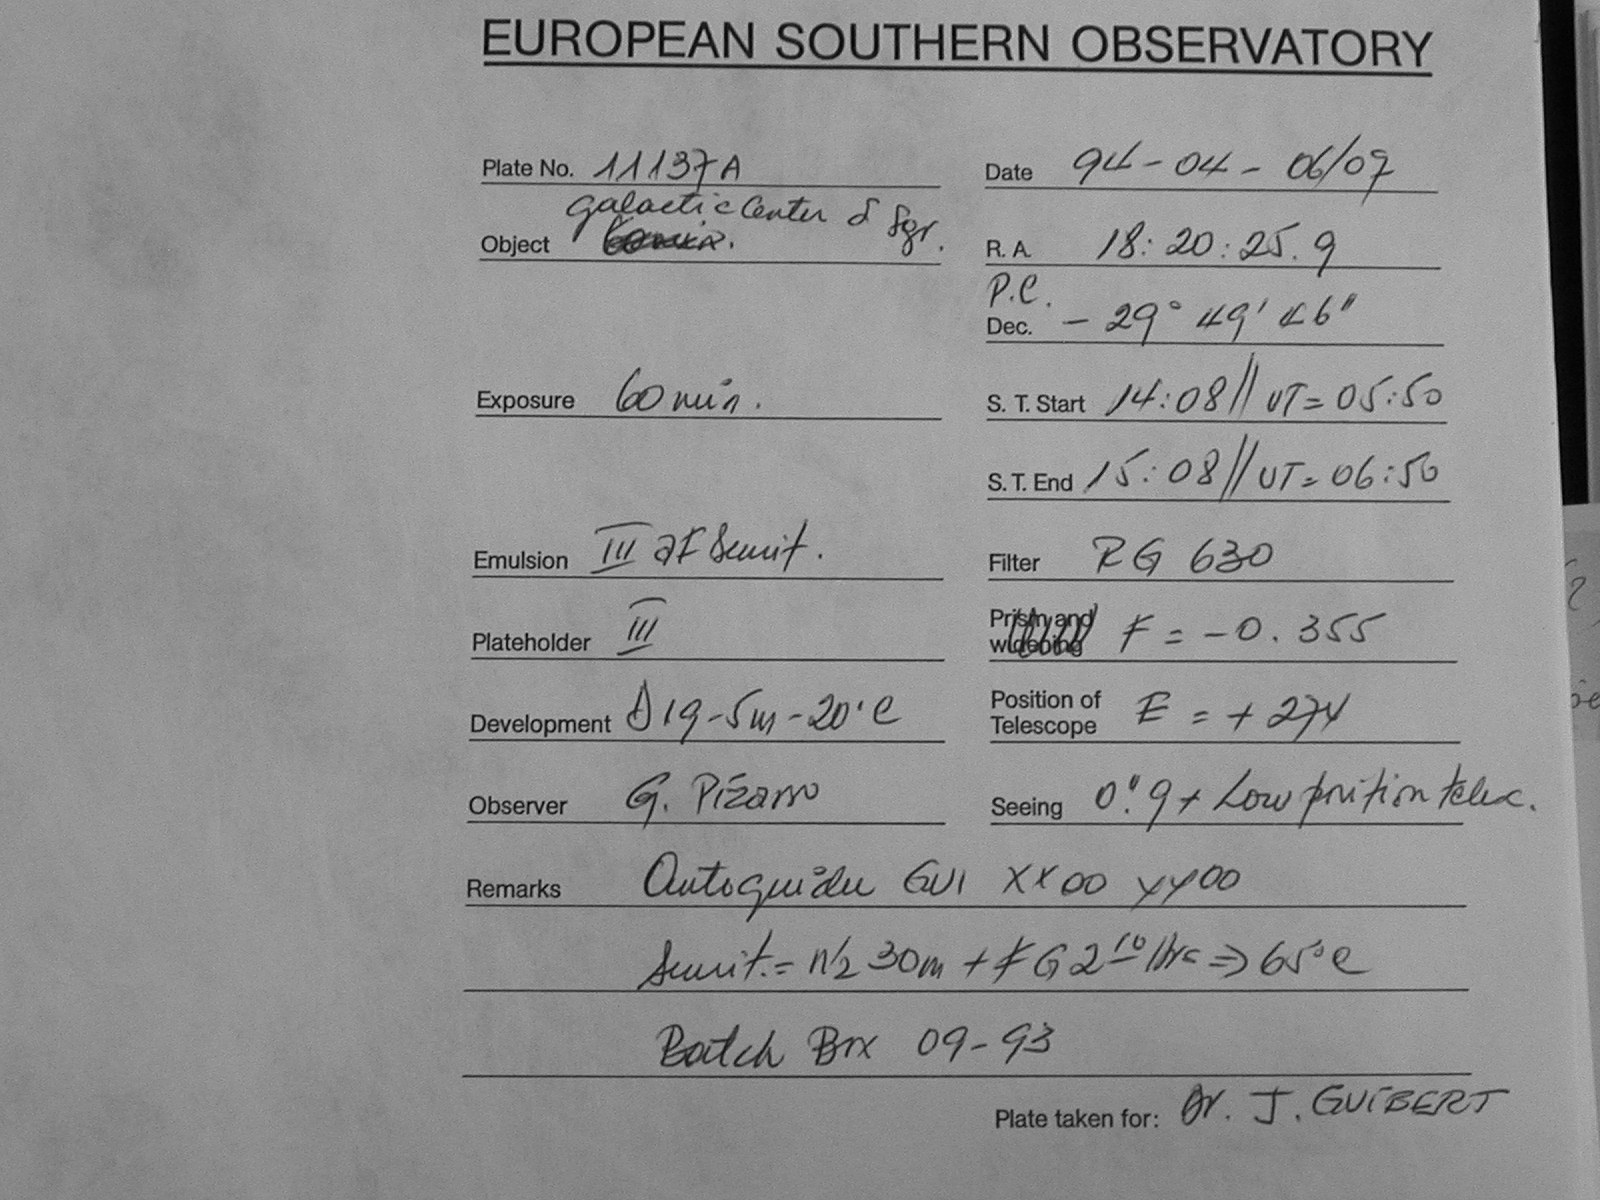 EUROPEAN SOUTHERN OBSERVATORY
Plate No. 11137A
Date 94-04-06/07
galactic Center δ Sgr.
Object
R. A. 18:20:25.9
P.C.
Dec. -29° 49' 46"
Exposure 60 min.
S. T. Start 14:08// UT=05:50
S. T. End 15:08// UT=06:50
Emulsion III aF Sensit.
Filter RG 630
Plateholder III
Prism and
widening F = -0.355
Development D19-5m-20°C
Position of
Telescope E = +274
Observer G. Pizarro
Seeing 0."9 + Low position telesc.
Remarks Autoguider GUI XX00 YY00
Sensit.= N2 30m + FG2 10 hrs => 65°C
Batch Box 09-93
Plate taken for: Dr. J. GUIBERT